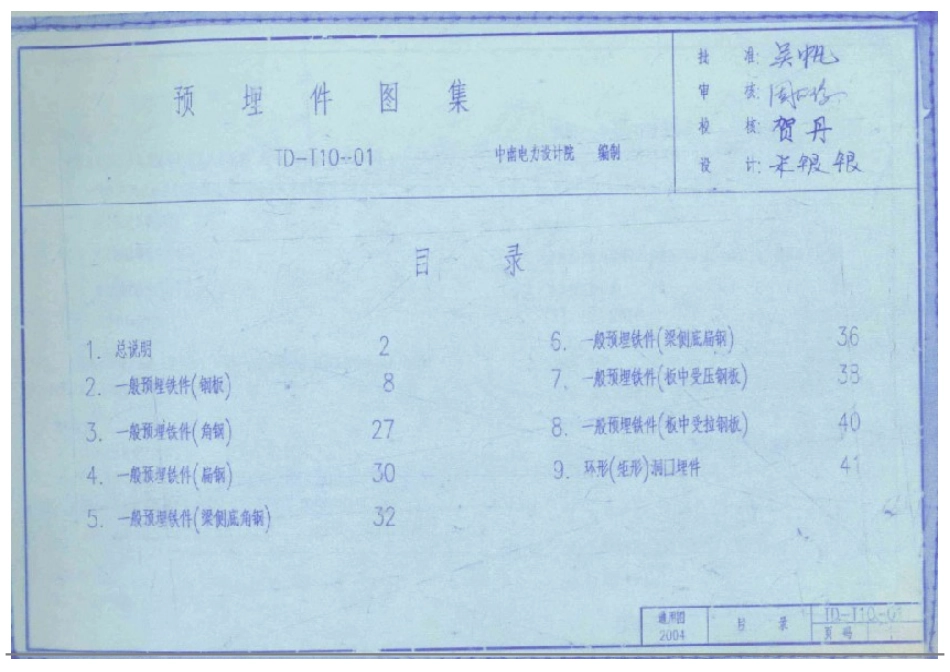 预埋件图集
TD-T10-01 中南电力设计院 编制
批 准: 吴帆
审 核:
校 核: 贺丹
设 计: 银银
目 录
1. 总说明 2
2. 一般预埋铁件(钢板) 8
3. 一般预埋铁件(角钢) 27
4. 一般预埋铁件(扁钢) 30
5. 一般预埋铁件(梁侧底角钢) 32
6. 一般预埋铁件(梁侧底扁钢) 36
7. 一般预埋铁件(板中受压钢板) 38
8. 一般预埋铁件(板中受拉钢板) 40
9. 环形(矩形)洞口埋件 41
通用图
2004
目 录
TD-T10-01
页 号